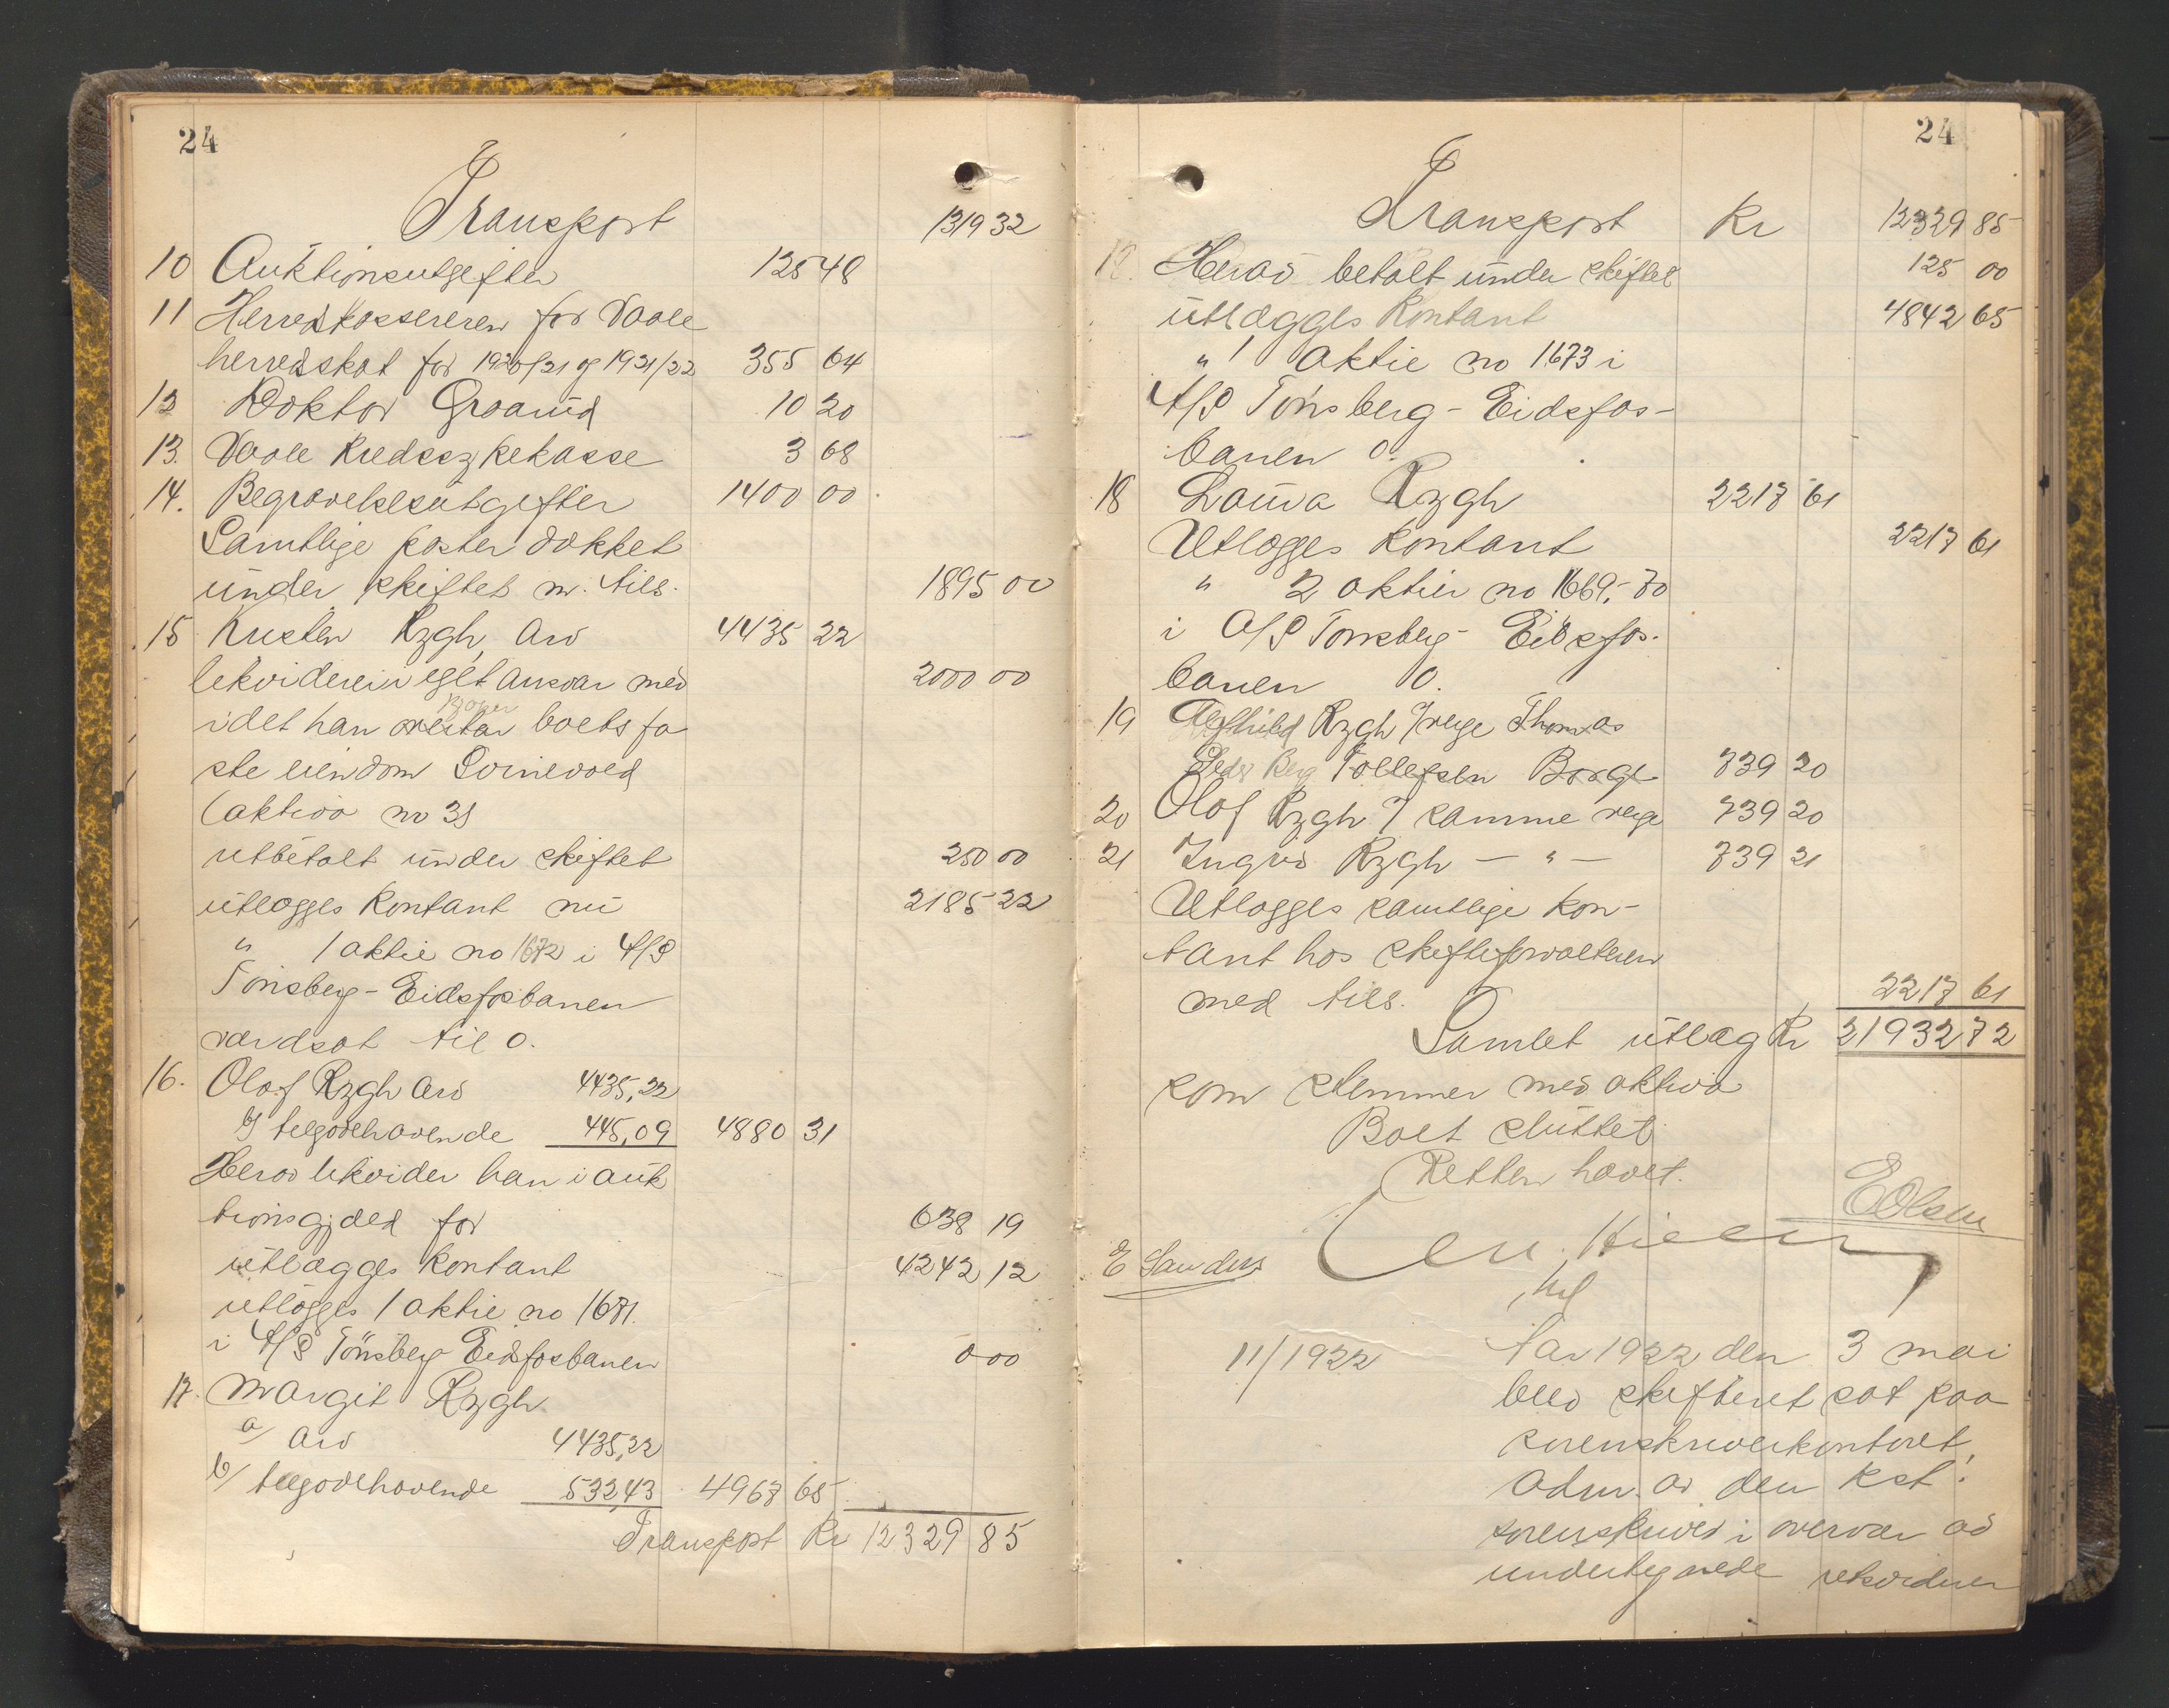 24
Transport 1319 32
10 Auktionsutgifter 125 48
11 Herredskassereren for Vaale
herredsskat for 1920/21 og 1921/22 355 64
12 Doktor Graarud 10 20
13. Vaale Kredssykekasse 3 68
14. Begravelsesutgifter 1400 00
Samtlige poster dækket
under skiftet m. tils. 1895 00
15 Kristen Rygh, arv 4435 22
likviderer eget ansvar med 2000 00
kjøper
idet han boets fa
ste eiendom
(aktiva no 3)
utbetalt under skiftet 250 00
utlægges kontant nu 2185 22
" 1 aktie no 1672 i A/S
Tönsberg-Eidsfosbanen
værdsat til 0.
16. Olaf Rygh arv 4435,22
b/ tilgodehavende 445,09 4880 31
Herav likvider han i auk
tionsgjæld for 638 19
utlægges kontant 4242 12
utlægges 1 aktie no 1671.
i A/S Tönsberg Eidsfosbanen 0 00
17. Margit Rygh
a/ arv 4435,22
b/ tilgodehavende 532,43 4967 65
Transport Kr 12329 85
24
Transport Kr 12329 85
Herav betalt under skiftet 125 00
utlægges kontant 4842 65
" 1 aktie no 1673 i
A/S Tönsberg-Eidsfos-
banen 0.
18 Laura Rygh 2217 61
Utlægges kontant 2217 61
" 2 aktier no 1669-70
i A/S Tønsberg-Eidsfos-
banen 0.
19 Rygh / verge Thomas
Tollefsen Borge 739 20
20 Olaf Rygh / samme verge 739 20
21 Ingrid Rygh — " — 739 21
Utlægges samtlige kon-
tant hos skifteforvalteren
med tils. 2217 61
Samlet utlæg Kr 21932 72
som stemmer med aktiva
Boet sluttet
Retten hævet.
E Olsen
E Sanders
11/1922 Aar 1922 den 3 mai
blev skifteret sat paa
sorenskriverkontoret,
adm. av den kst.
sorenskriver i overvær av
undertegnede retsvidner